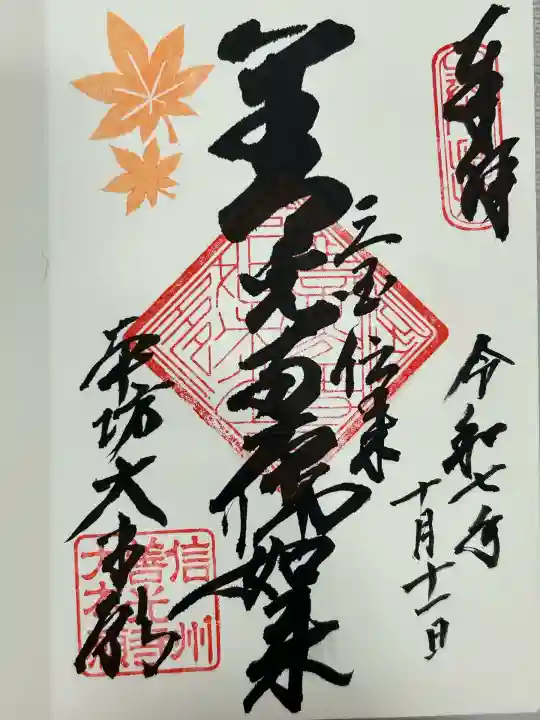 奉拝
令和七年
十月十一日
三国伝来
善光如来
本坊大本願
信州
善光寺
大本願